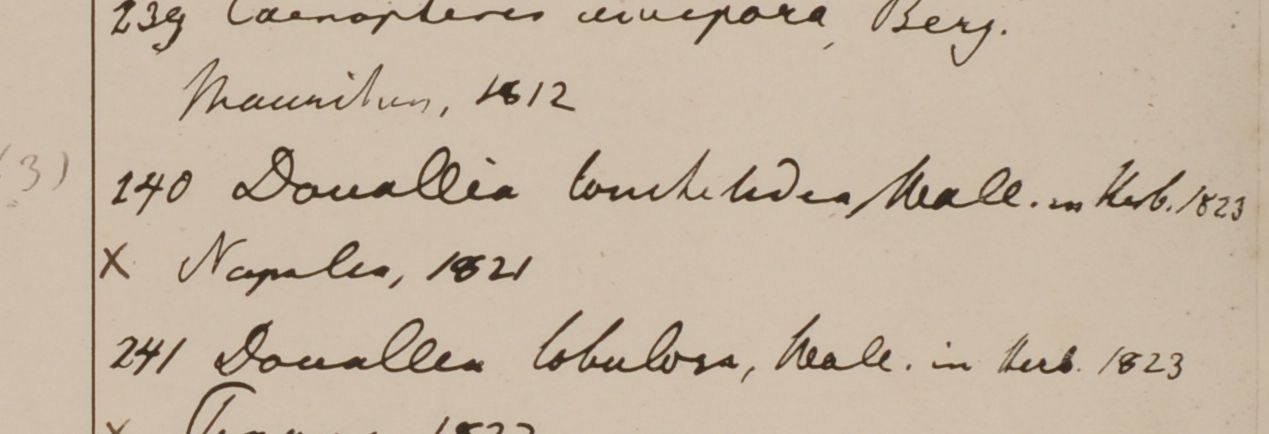 239 Caenopteris vivipara, Berg.
Mauritius, 1812
(3)
240 Davallia conchilidea, Wall. in Herb. 1823
X Napalia, 1821
241 Davallia lobulosa, Wall. in Herb. 1823
X 1822